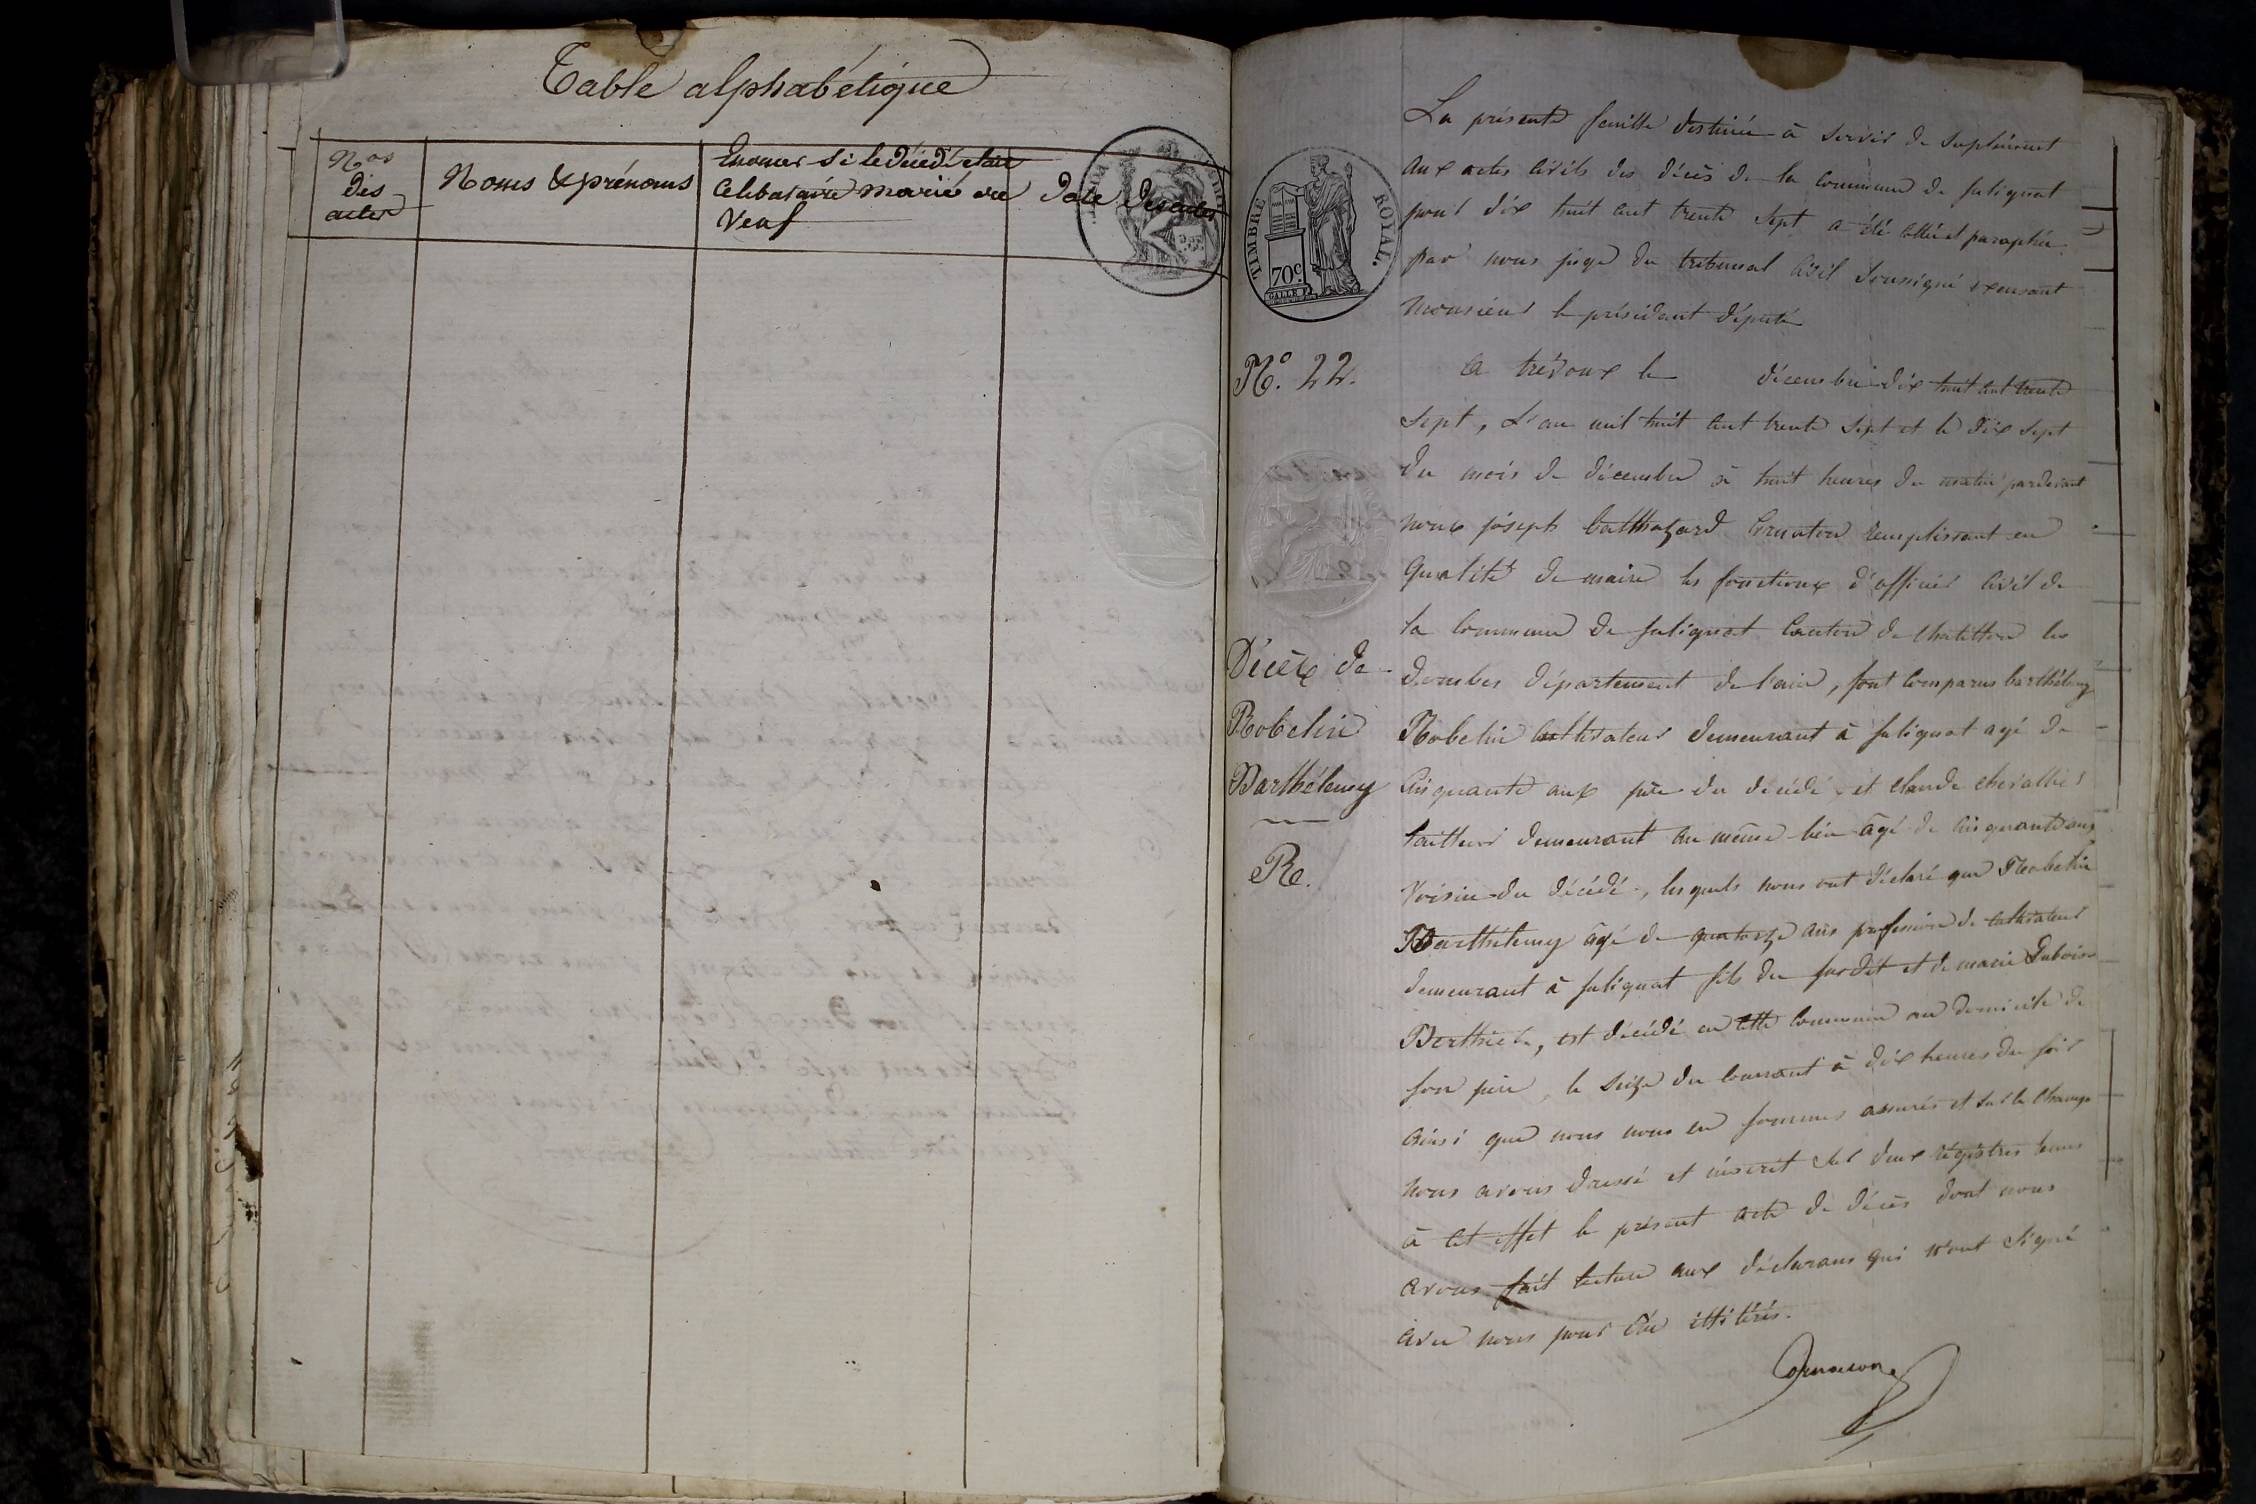 Table alphabétique
Nos
des
actes
Noms & prénoms
Enoncer si le décédé etait
Celibataire marié ou
Veuf
Date des actes
TIMBRE ROYAL.
70c.
La présente feuille destinée à servir de suplément
aux actes civils des décès de la commune de salignat
pour dix huit cent trente sept a été cottée et paraphée
par nous juge du tribunal civil soussigné
monsieur le président député
No. 22.
a trévoux le décembre dix huit cent trente
sept, L'an mil huit cent trente sept et le dix sept
du mois de décembre à huit heures du matin pardevant
nous joseph balthazard remplissant en
qualité de maire les fonctions d'officier civil de
la commune de salignat canton de chatillon les
Décès de
Robelin
Barthélemy
Re.
dombes département de l'ain, sont comparus barthélemy
Robelin cultivateur demeurant à salignat agé de
cinquante ans père du décédé, et claude chevallier
tailleur demeurant au même lieu âgé de cinquante ans
voisin du décédé, lesquels nous ont déclaré que Robelin
Barthélemy âgé de quatorze ans profession de cultivateur
demeurant à salignat fils du susdit et de marie Dubois
, est décédé en cette commune au domicile de
son père, le seize du courrant à dix heures du soir
ainsi que nous nous en sommes assurés et sur le champ
nous avons dressé et inscrit sur deux régistres tenus
à cet effet le présent acte de décès dont nous
avons fait lecture aux déclarans qui n'ont signé
avec nous pour être illitérés.